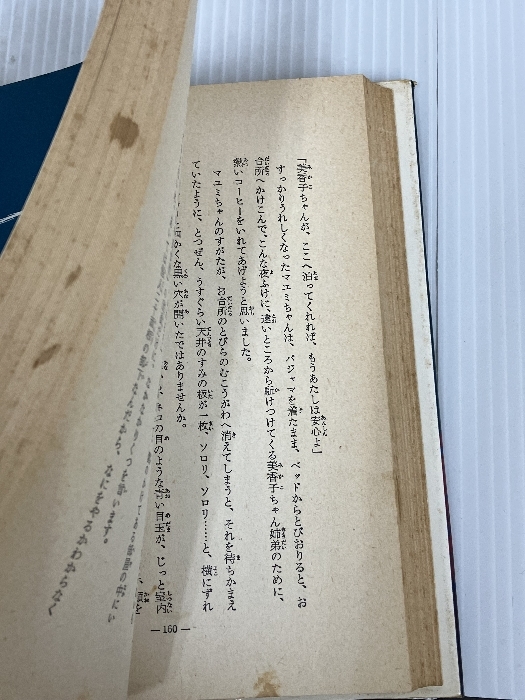 「美香子ちゃんが、ここへ泊ってくれれば、もうあたしは安心よ」
すっかりうれしくなったマユミちゃんは、パジャマを着たまま、ベッドからとびおりると、お
台所へかけこんで、こんな夜ふけに、遠いところから駈けつけてくる美香子ちゃん姉弟のために、
熱いコーヒーをいれてあげようと思いました。
マユミちゃんのすがたが、お台所のとびらのむこうがわへ消えてしまうと、それを待ちかまえ
ていたように、とつぜん、うすぐらい天井のすみの板が一枚、ソロリ、ソロリ……と、横にずれ
かくな黒い穴が開いたではありませんか。
ネコの目のような青い目玉が、じっと室内
を
だから、なにをやるかわからなく
います。
— 160 —